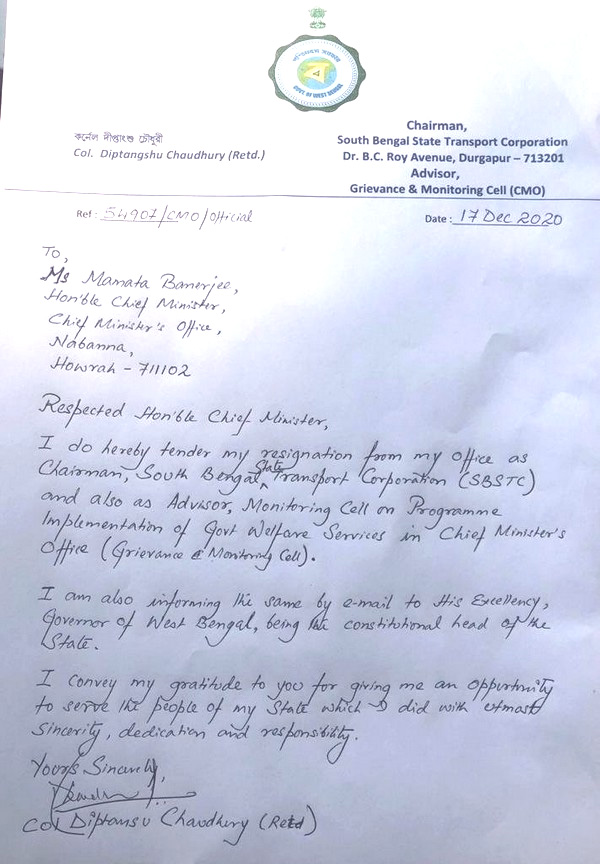 পশ্চিমবঙ্গ সরকার
GOVT. OF WEST BENGAL
কর্নেল দীপ্তাংশু চৌধুরী
Col. Diptangshu Chaudhury (Retd.)
Chairman,
South Bengal State Transport Corporation
Dr. B.C. Roy Avenue, Durgapur – 713201
Advisor,
Grievance & Monitoring Cell (CMO)
Ref : 54907/CMO/Official
Date : 17 Dec 2020
To,
Ms Mamata Banerjee,
Hon'ble Chief Minister,
Chief Minister's Office,
Nabanna,
Howrah - 711102
Respected Hon'ble Chief Minister,
I do hereby tender my resignation from my office as
Chairman, South Bengal State Transport Corporation (SBSTC)
and also as Advisor, Monitoring Cell on Programme
Implementation of Govt Welfare Services in Chief Minister's
Office (Grievance & Monitoring Cell).
I am also informing the same by e-mail to His Excellency,
Governor of West Bengal, being the constitutional head of the
State.
I convey my gratitude to you for giving me an opportunity
to serve the people of my State which I did with utmost
sincerity, dedication and responsibility.
Yours Sincerely,
Col Diptansu Chaudhury (Retd)